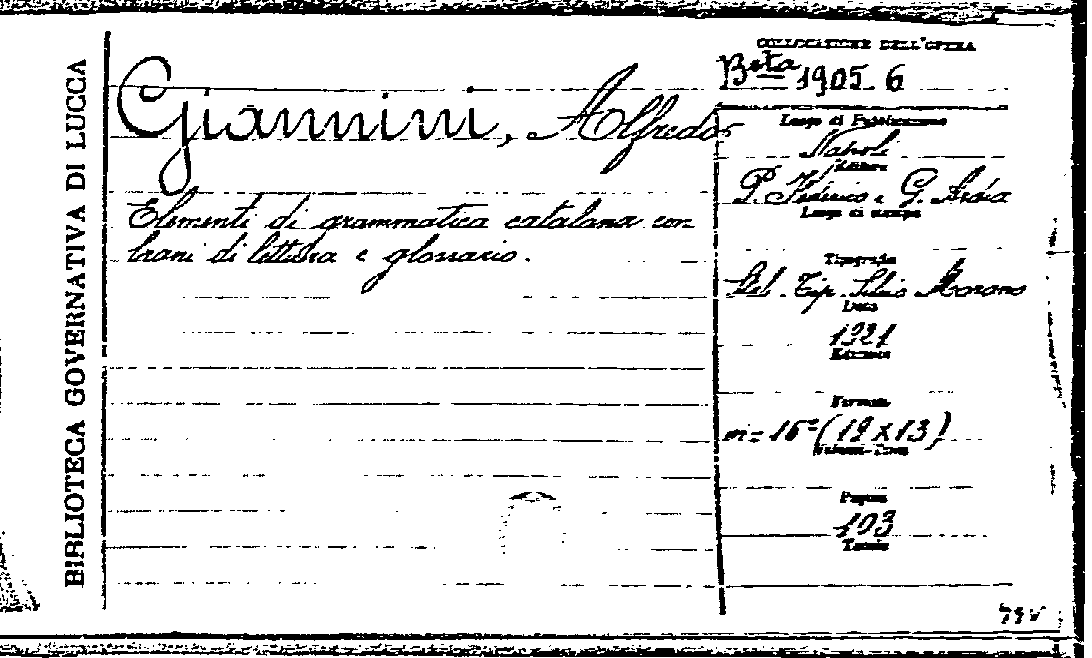 BIBLIOTECA GOVERNATIVA DI LUCCA
Giannini, Alfredo
Elementi di grammatica catalana con
brani di lettura e glossario.
COLLOCAZIONE DELL'OPERA
Beta 1905. 6
Luogo di Pubblicazione
Napoli
Editore
P. Federico e G. Ardia
Luogo di stampa
Tipografia
Stab. Tip. Silvio Morano
Data
1921
Edizione
Formato
in = 16° (19 x 13)
Volumi-Tomi
Pagine
103
Tavole